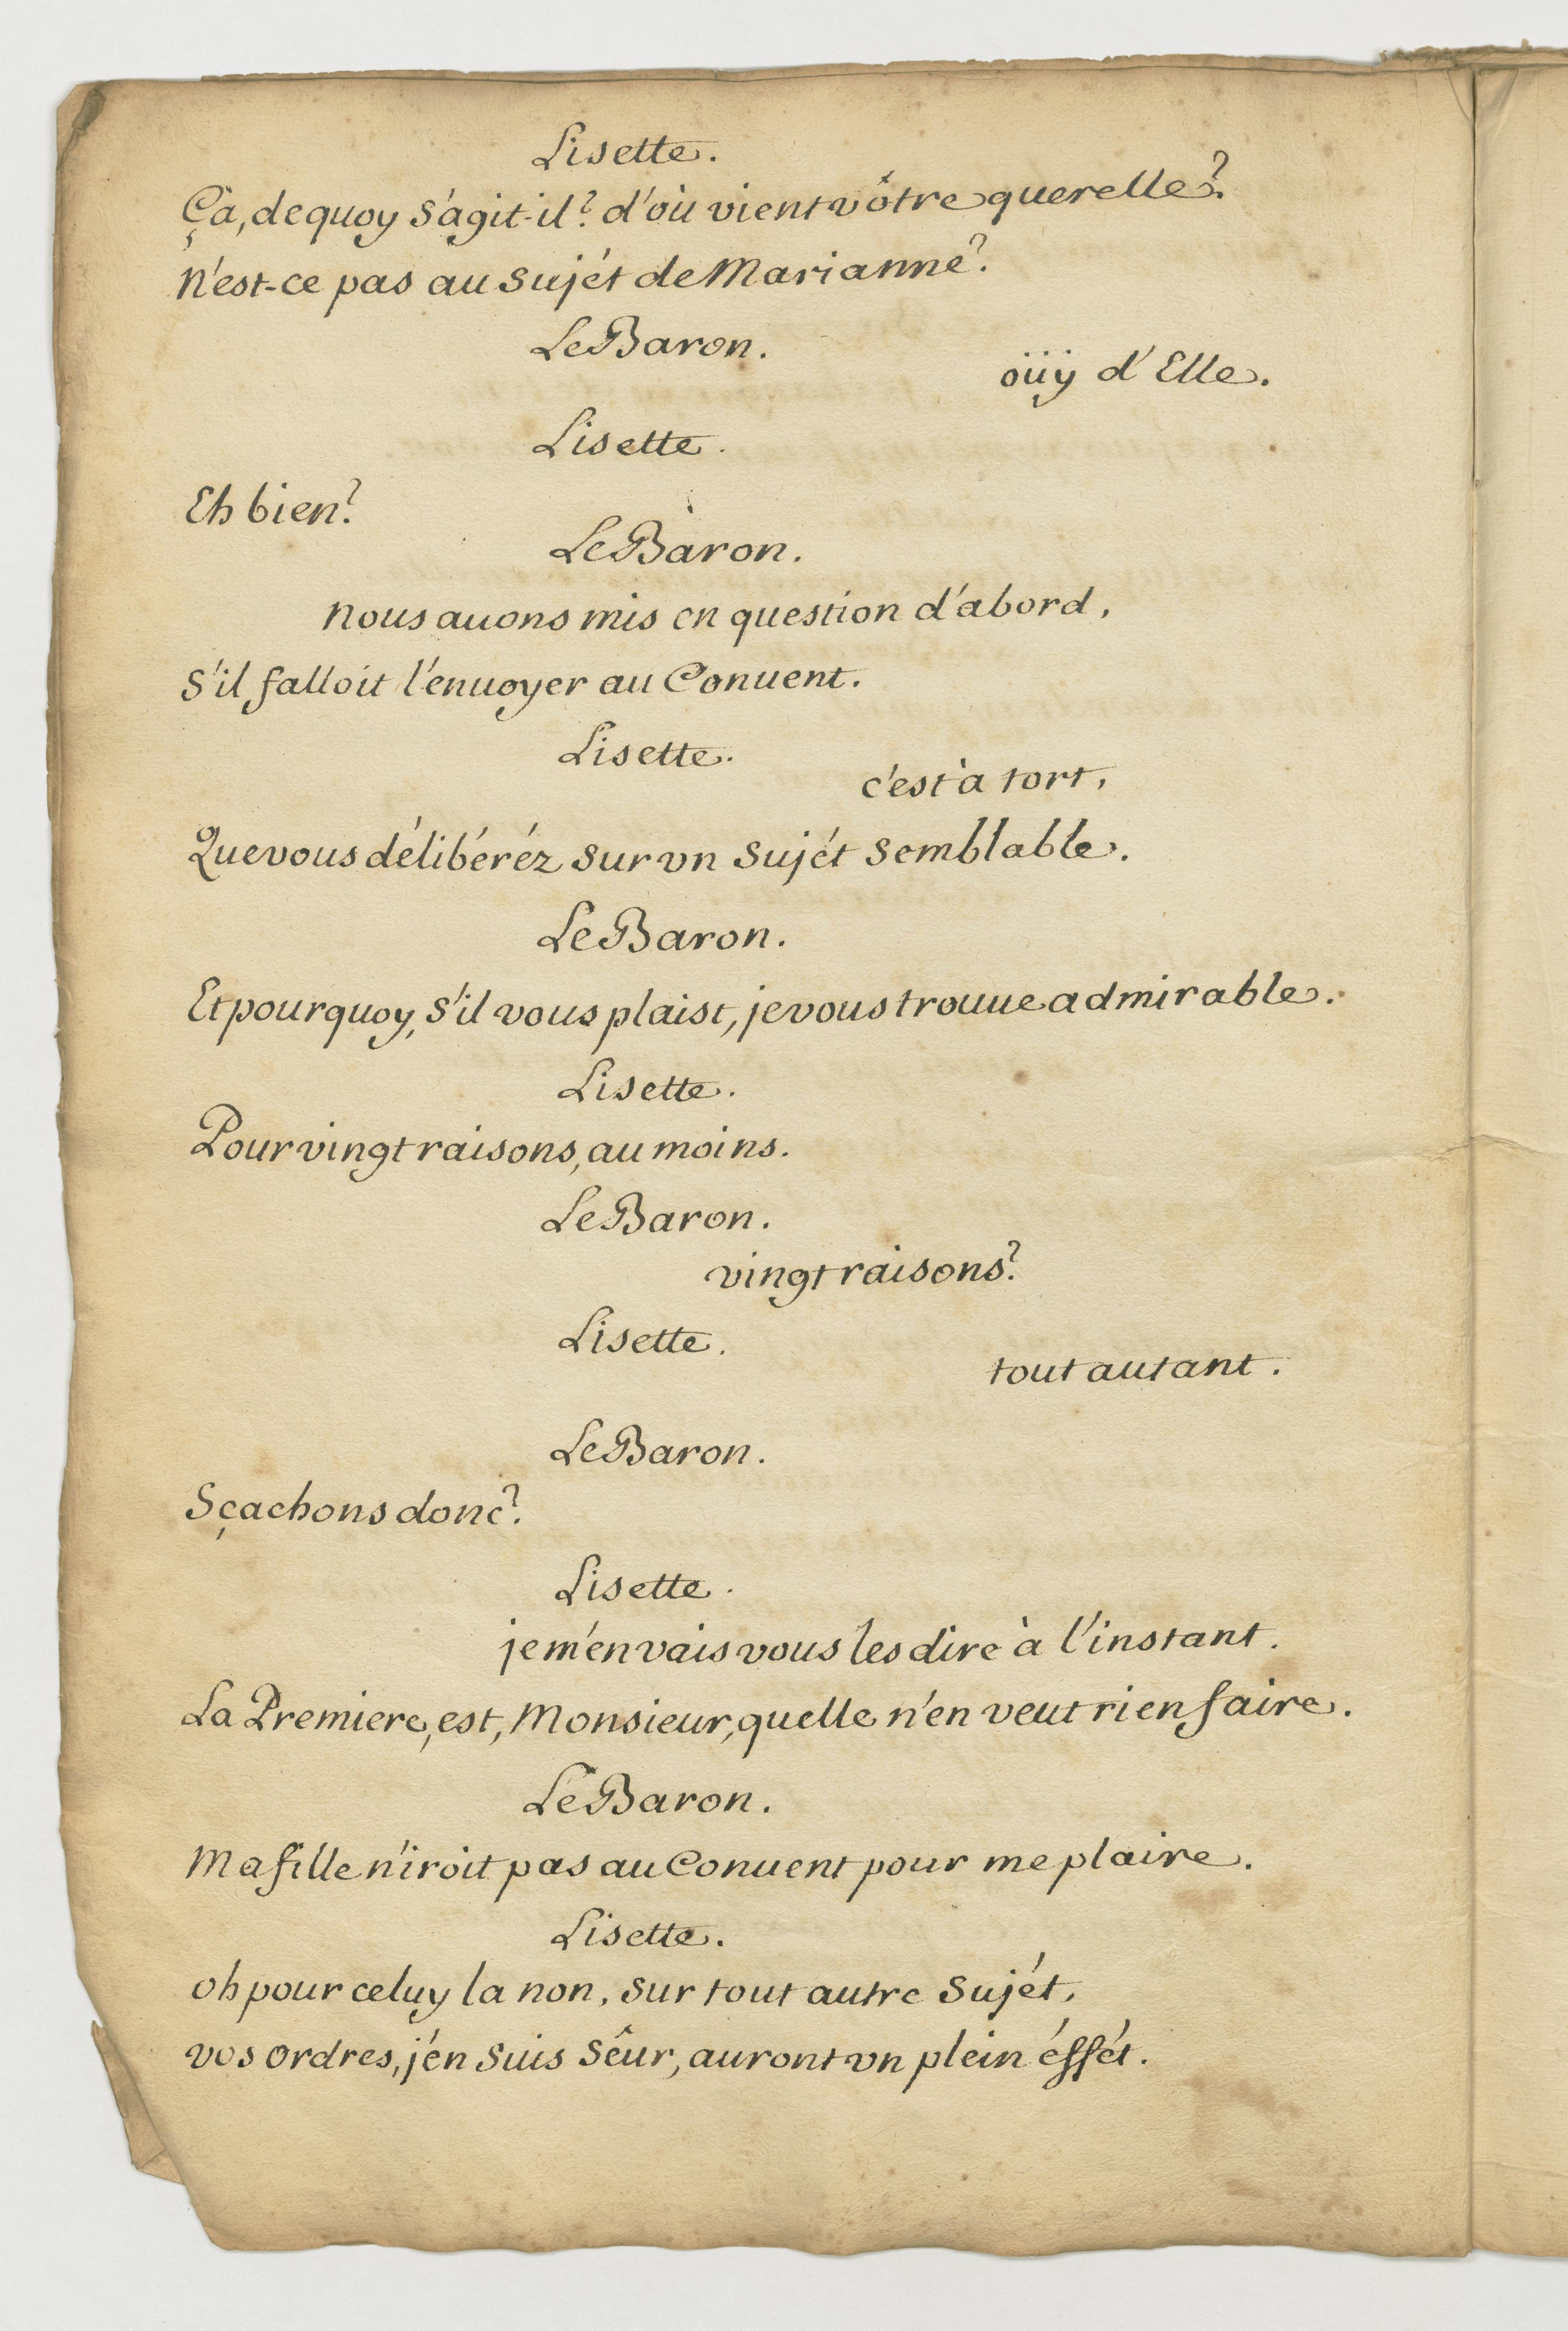 Lisette.
Ça, de quoy s'agit-il? d'où vient vôtre querelle?
n'est-ce pas au sujét de Marianne?
Le Baron.
oüy d'Elle.
Lisette.
Eh bien?
Le Baron.
nous auons mis en question d'abord,
s'il falloit l'enuoyer au Conuent.
Lisette.
c'est à tort,
Que vous délibéréz sur vn sujét semblable.
Le Baron.
Et pourquoy, s'il vous plaist, je vous trouue admirable.
Lisette.
Pour vingt raisons, au moins.
Le Baron.
vingt raisons?
Lisette.
tout autant.
Le Baron.
Sçachons donc?
Lisette.
je m'en vais vous les dire à l'instant.
La Premiere, est, Monsieur, quelle n'en veut rien faire.
Le Baron.
Ma fille n'iroit pas au Conuent pour me plaire.
Lisette.
oh pour celuy la non, sur tout autre sujét,
vos ordres, j'en suis sêur, auront vn plein éffét.